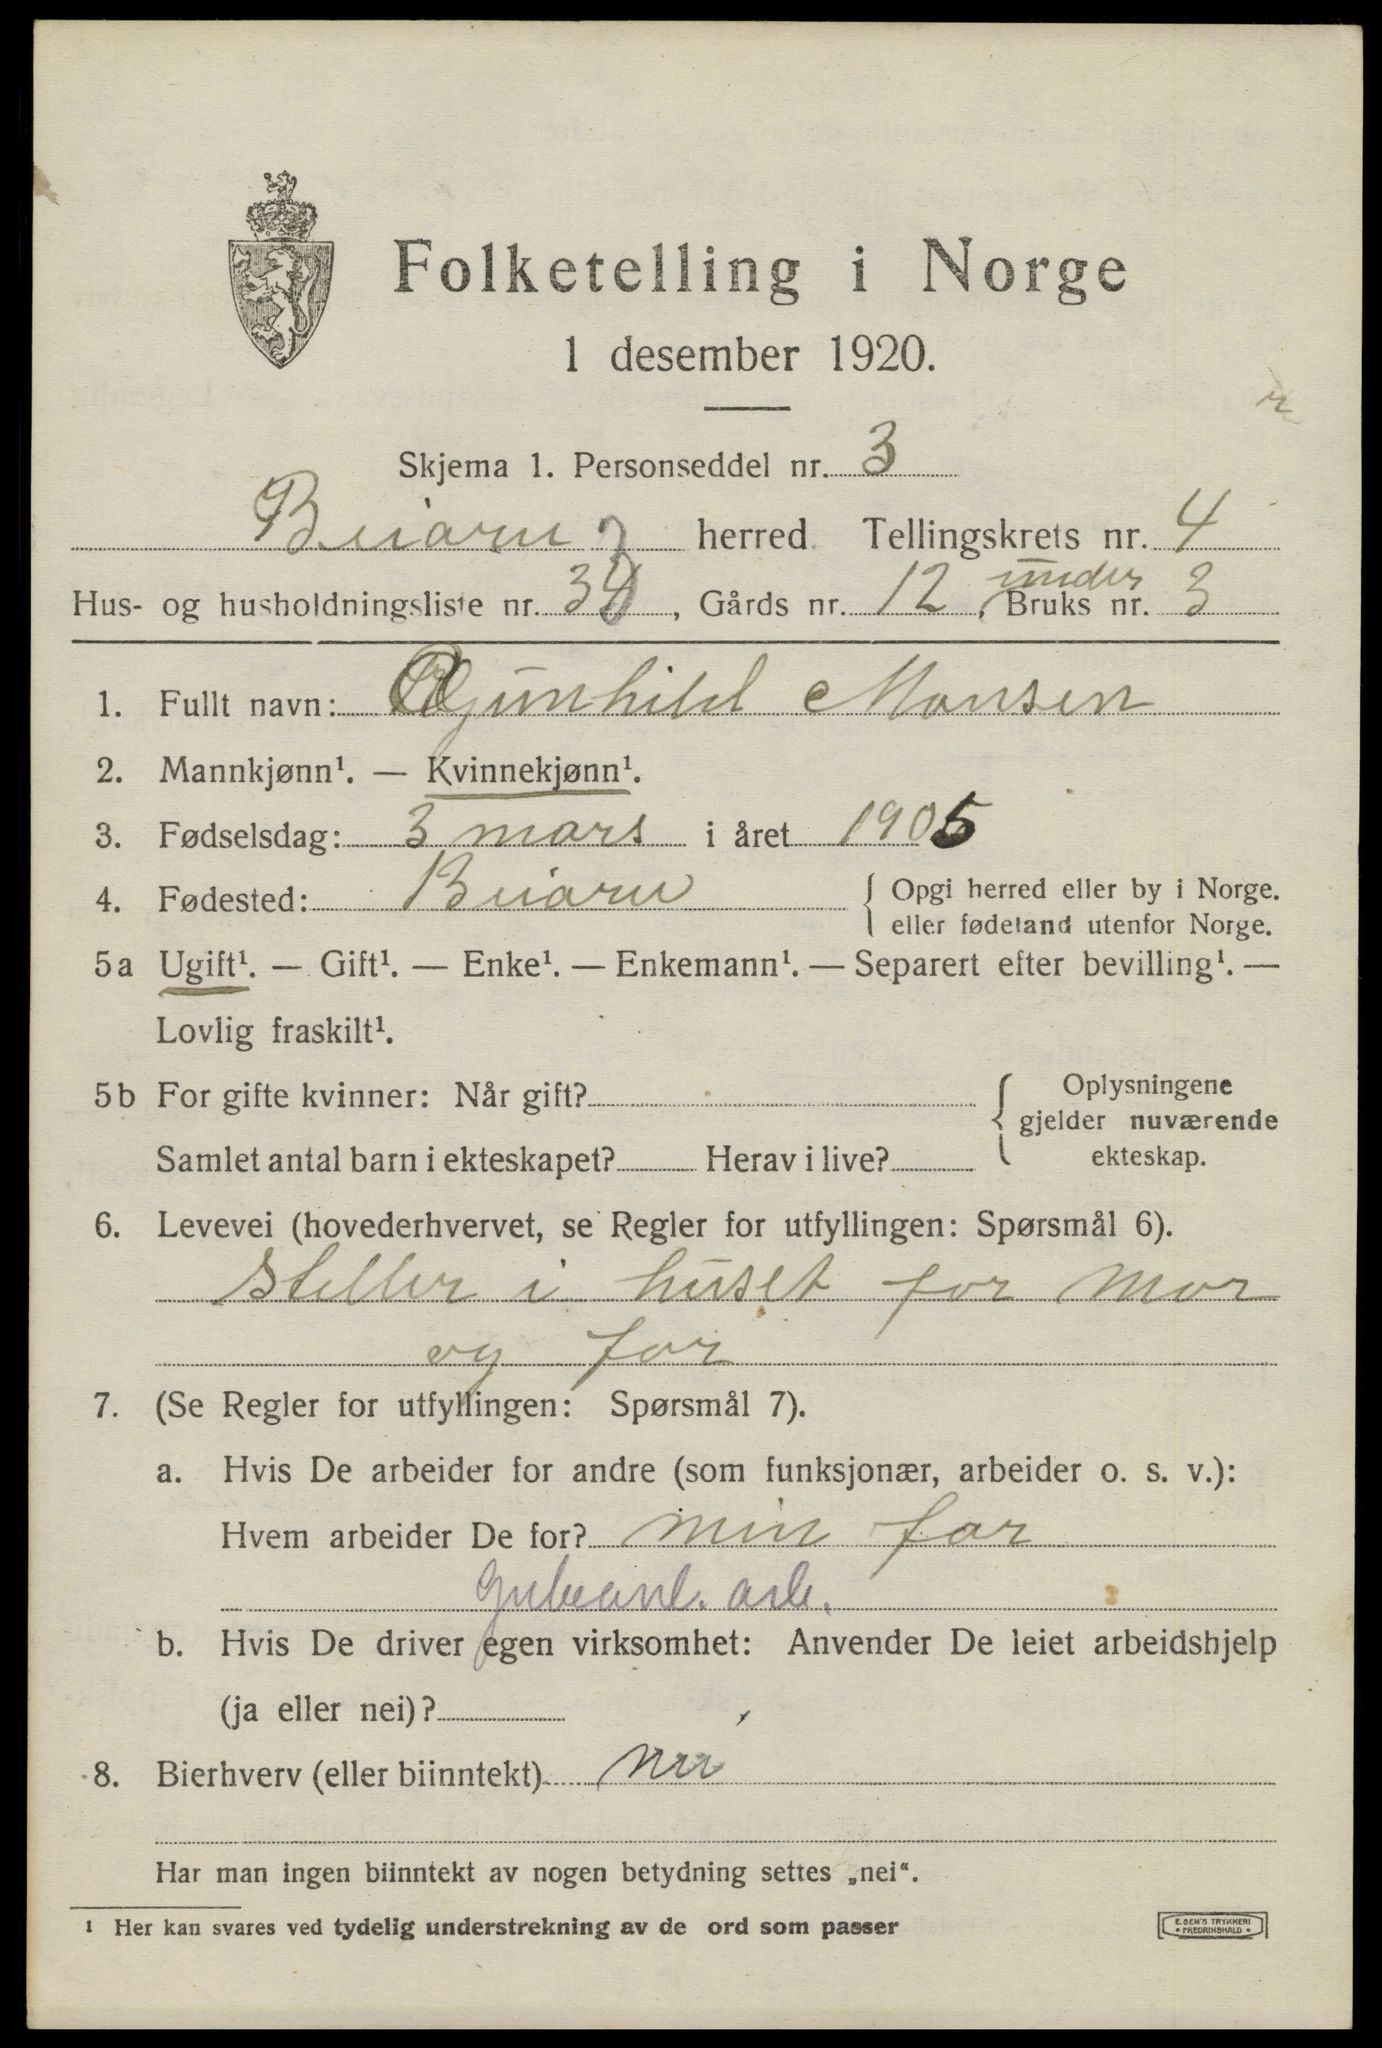 Folketelling i Norge
1 desember 1920.
Skjema 1. Personseddel nr. 3
Beiarn herred Tellingskrets nr. 4
Hus- og husholdningsliste nr. 34, Gårds nr. 12, under Bruks nr. 3
1. Fullt navn: Gunhild Monsen
2. Mannkjønn¹. — Kvinnekjønn¹.
3. Fødselsdag: 3 mars i året 1905
4. Fødested: Beiarn { Opgi herred eller by i Norge.
eller fødeland utenfor Norge.
5a Ugift¹. — Gift¹. — Enke¹. — Enkemann¹. — Separert efter bevilling¹. —
Lovlig fraskilt¹.
5b For gifte kvinner: Når gift? { Oplysningene
gjelder nuværende
Samlet antal barn i ekteskapet? Herav i live? ekteskap.
6. Levevei (hovederhvervet, se Regler for utfyllingen: Spørsmål 6).
Steller i huset for Mor
og far
7. (Se Regler for utfyllingen: Spørsmål 7).
a. Hvis De arbeider for andre (som funksjonær, arbeider o. s. v.):
Hvem arbeider De for? min far
arb.
b. Hvis De driver egen virksomhet: Anvender De leiet arbeidshjelp
(ja eller nei)?
8. Bierhverv (eller biinntekt) nei
Har man ingen biinntekt av nogen betydning settes „nei“.
¹ Her kan svares ved tydelig understrekning av de ord som passer
E. SEM'S TRYKKERI
• FREDRIKSHALD •